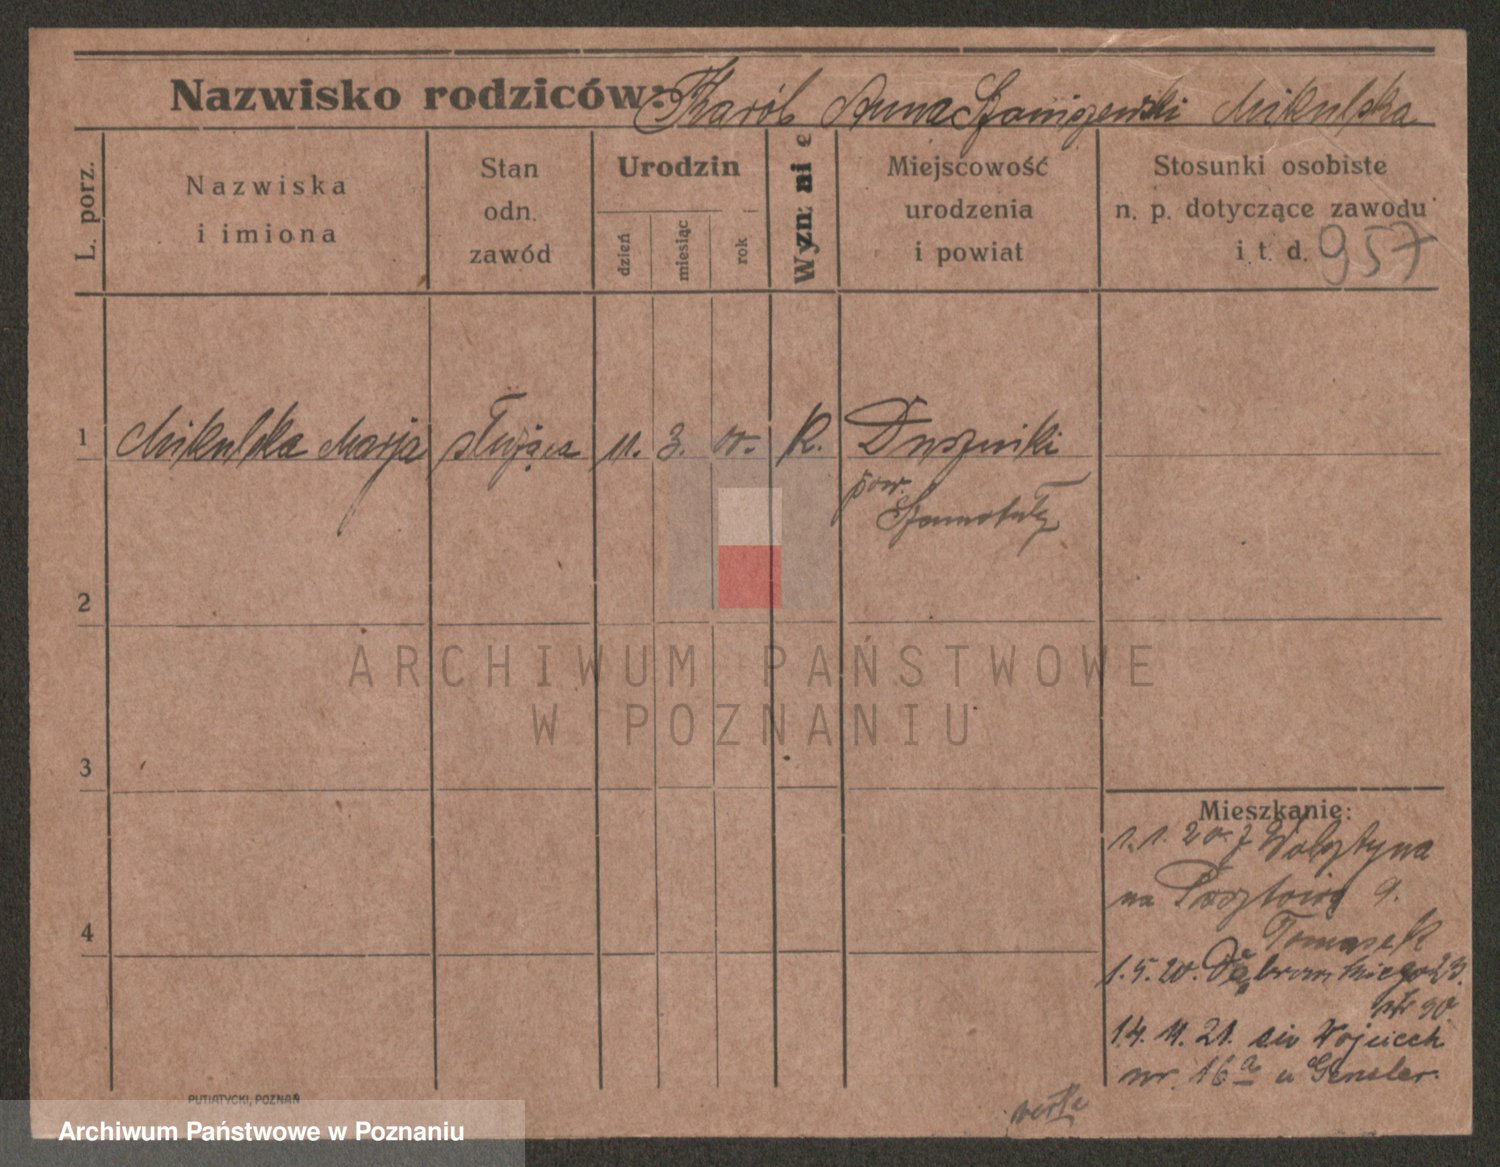 Nazwisko rodziców: Karól Anna Szoniszewski Mikulska
L. porz.
Nazwiska
i imiona
Stan
odn.
zawód
Urodzin
dzień
miesiąc
rok
Wyznanie
Miejscowość
urodzenia
i powiat
Stosunki osobiste
n. p. dotyczące zawodu
i t. d. 957
1 Mikulska Marja służąca 11. 3. 00. K. Duszniki
pow.
Szamotuły
2
ARCHIWUM PAŃSTWOWE
W POZNANIU
3
Mieszkanie:
1.1.20. z Wolsztyna
na 9.
Tomasek
1.5.20. Dąbrowskiego 23.
14. 11. 21. Wojciech
nr. 16a u Gensler.
4
PUTIATYCKI, POZNAŃ
Archiwum Państwowe w Poznaniu